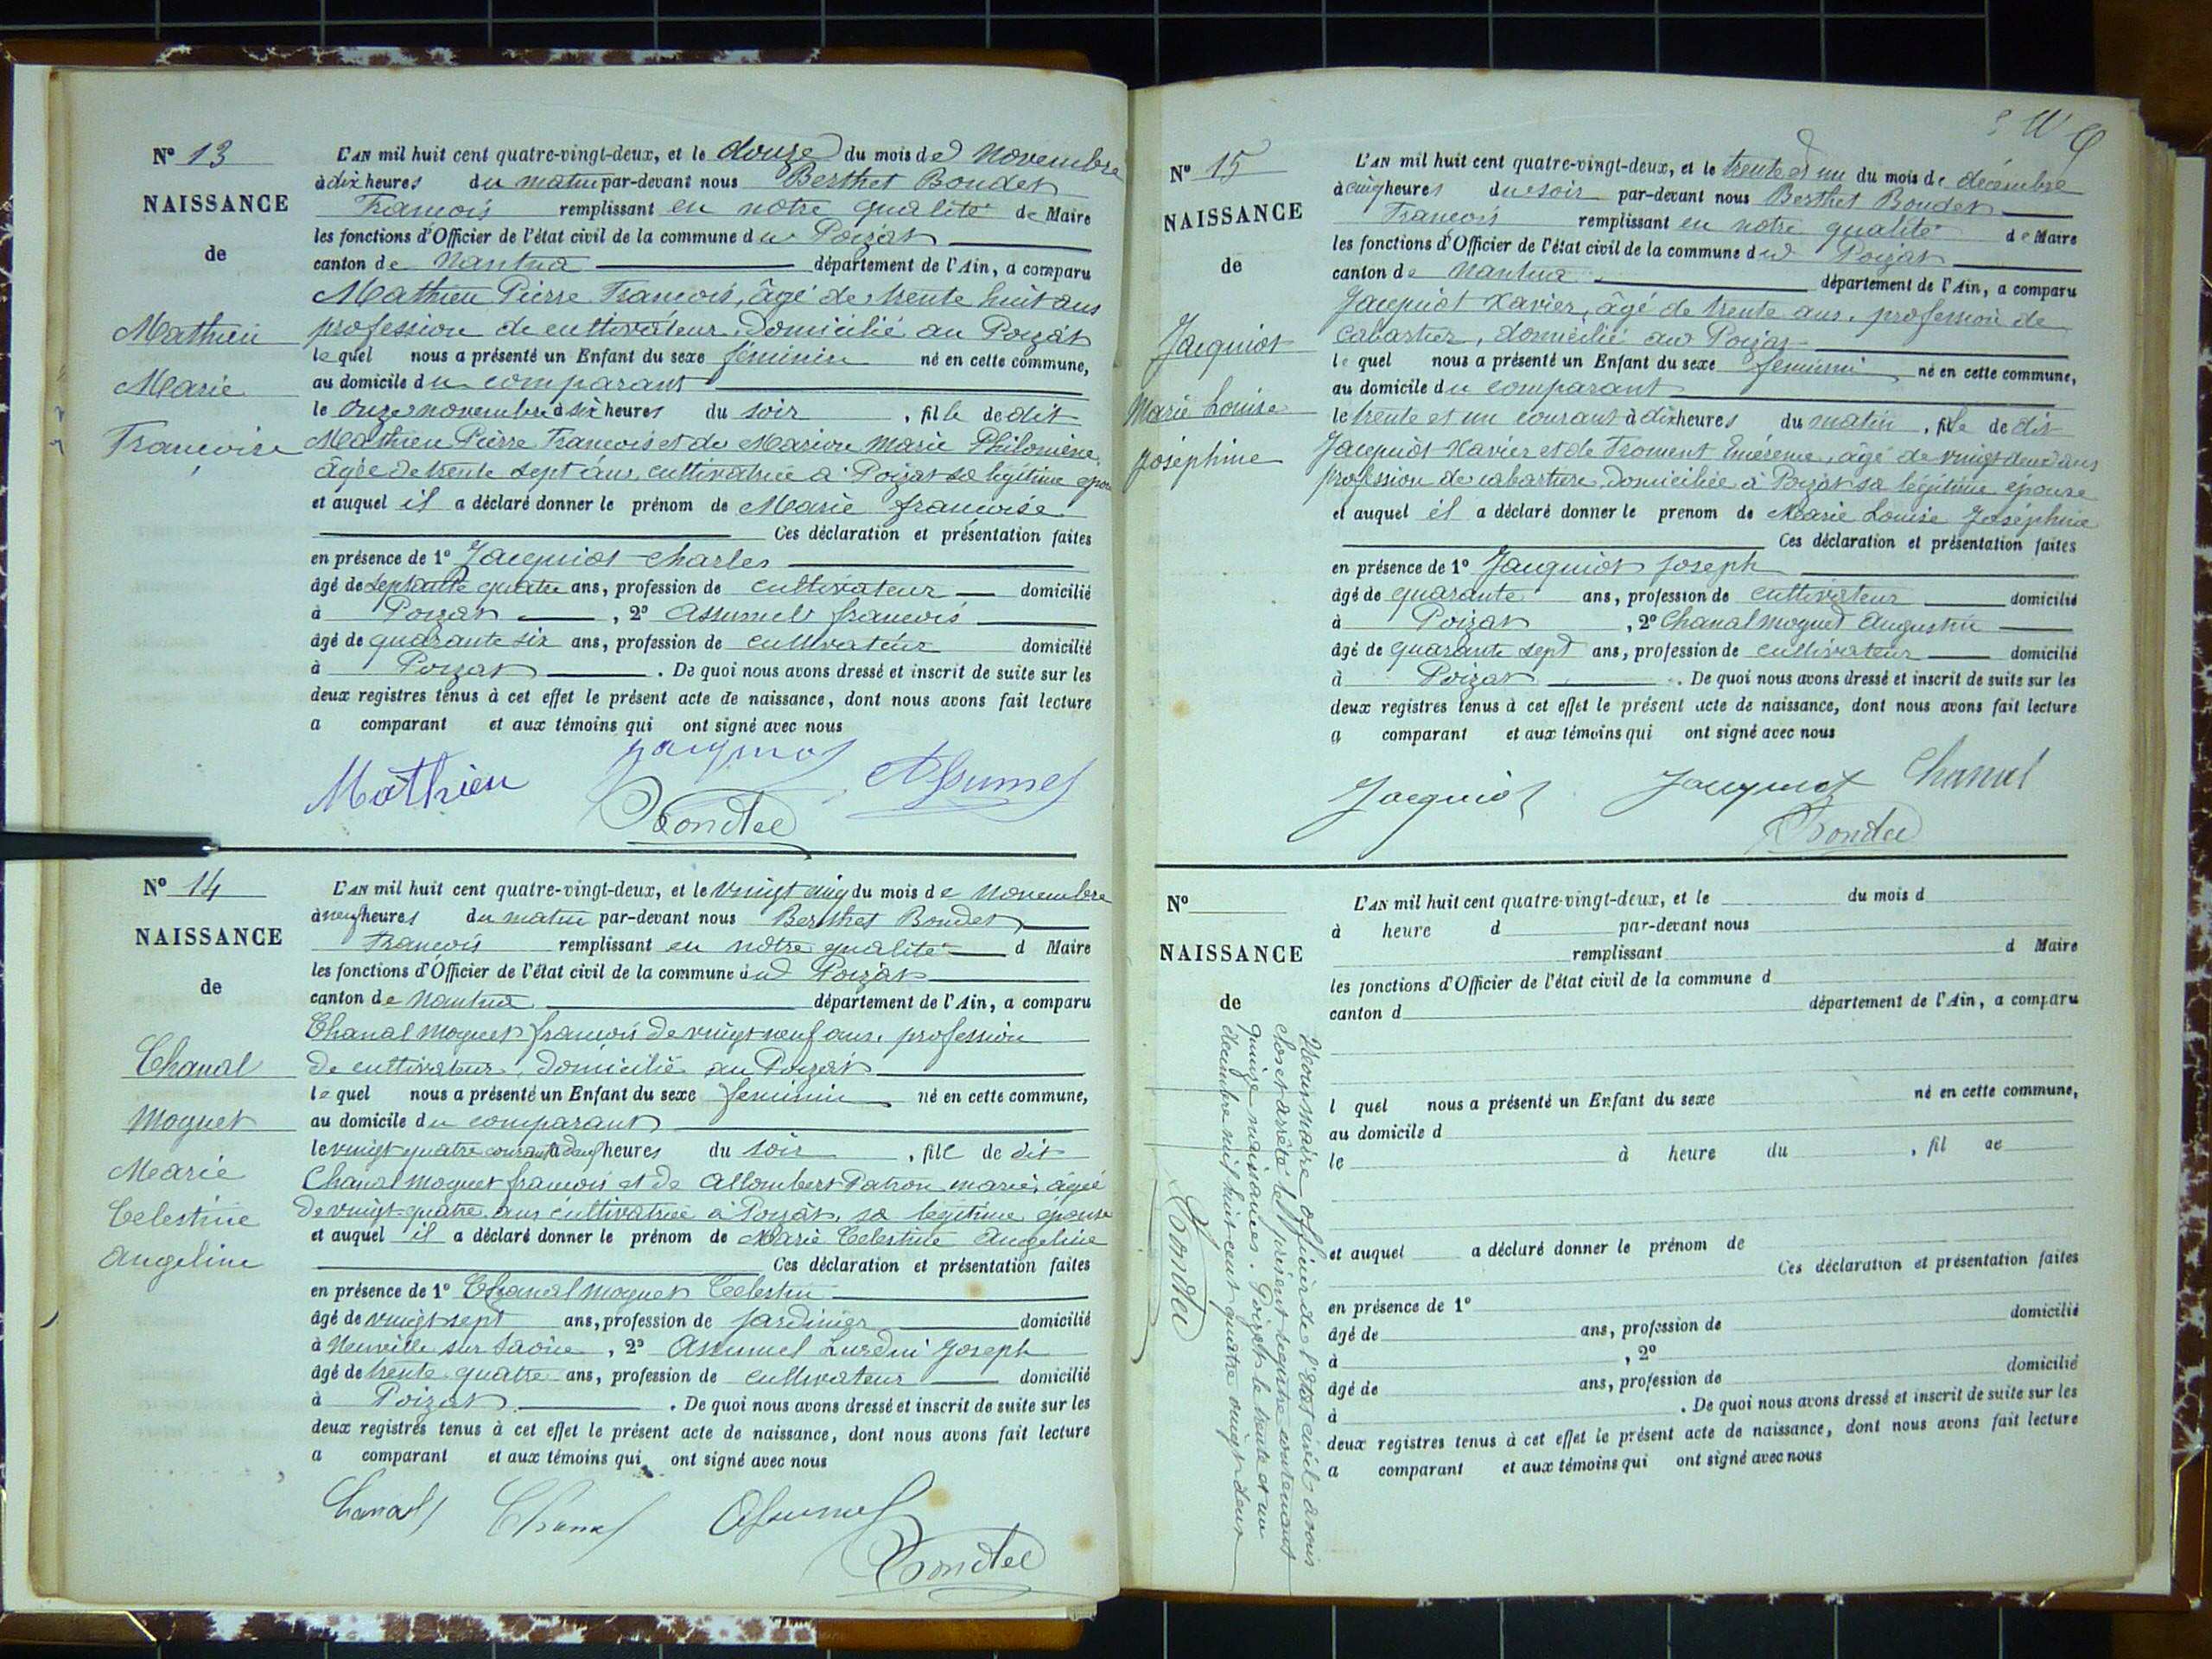 N° 13
NAISSANCE
de
Mathieu
Marie
Françoise
L'AN mil huit cent quatre-vingt-deux, et le douze du mois de Novembre
à dix heures du matin par-devant nous Berthet Bondet
François remplissant en notre qualité de Maire
les fonctions d'Officier de l'état civil de la commune du Poizat
canton de Nantua département de l'Ain, a comparu
Mathieu Pierre François, âgé de trente huit ans
profession de cultivateur, domicilié au Poizat
le quel nous a présenté un Enfant du sexe féminin né en cette commune,
au domicile du comparant
le onze novembre à six heures du soir, fille de dit
Mathieu Pierre François et de Marion Marie Philomène,
âgée de trente sept ans, cultivatrice à Poizat sa légitime épouse
et auquel il a déclaré donner le prénom de Marie françoise
Ces déclaration et présentation faites
en présence de 1° Jacquiot Charles
âgé de septante quatre ans, profession de cultivateur domicilié
à Poizat, 2° Assumel françois
âgé de quarante six ans, profession de cultivateur domicilié
à Poizat. De quoi nous avons dressé et inscrit de suite sur les
deux registres tenus à cet effet le présent acte de naissance, dont nous avons fait lecture
a comparant et aux témoins qui ont signé avec nous
Mathieu Jacquiot Assumel
Bondet
N° 14
NAISSANCE
de
Chanal
Moguet
Marie
Celestine
Angeline
L'AN mil huit cent quatre-vingt-deux, et le vingt cinq du mois de Novembre
à neuf heures du matin par-devant nous Berthet Bondet
François remplissant en notre qualité d Maire
les fonctions d'Officier de l'état civil de la commune du Poizat
canton de Nantua département de l'Ain, a comparu
Chanal Moguet françois de vingt neuf ans, profession
de cultivateur, domicilié au Poizat
le quel nous a présenté un Enfant du sexe féminin né en cette commune,
au domicile du comparant
le vingt quatre courant à heures du soir, fille de dit
Chanal moguet françois et de Allombert Patron marie, âgée
de vingt-quatre ans cultivatrice à Poizat, sa légitime épouse
et auquel il a déclaré donner le prénom de Marie Celestine Angeline
Ces déclaration et présentation faites
en présence de 1° Chanal Moguet Celestin
âgé de vingt sept ans, profession de Jardinier domicilié
à Neuville sur Saône, 2° Assumel Lurdin Joseph
âgé de trente quatre ans, profession de cultivateur domicilié
à Poizat. De quoi nous avons dressé et inscrit de suite sur les
deux registres tenus à cet effet le présent acte de naissance, dont nous avons fait lecture
a comparant et aux témoins qui ont signé avec nous
Chanal Chanal Assumel
Bondet
N° 15
NAISSANCE
de
Jacquiot
Marie Louise
Joséphine
L'AN mil huit cent quatre-vingt-deux, et le trente et un du mois de décembre
à cinq heures du soir par-devant nous Berthet Bondet
François remplissant en notre qualité de Maire
les fonctions d'Officier de l'état civil de la commune du Poizat
canton de Nantua département de l'Ain, a comparu
Jacquiot Xavier, âgé de trente ans, profession de
cabartier, domicilié au Poizat
le quel nous a présenté un Enfant du sexe féminin né en cette commune,
au domicile du comparant
le trente et un courant à dix heures du matin, fille de dit
Jacquiot Xavier et de Froment, âgé de vingt deux ans
profession de cabartière, domiciliée à Poizat sa légitime épouse
et auquel il a déclaré donner le prenom de Marie Louise Joséphine
Ces déclaration et présentation faites
en présence de 1° Jacquiot Joseph
âgé de quarante ans, profession de cultivateur domicilié
à Poizat, 2° Chanal moguet Augustin
âgé de quarante sept ans, profession de cultivateur domicilié
à Poizat. De quoi nous avons dressé et inscrit de suite sur les
deux registres tenus à cet effet le présent acte de naissance, dont nous avons fait lecture
a comparant et aux témoins qui ont signé avec nous
Jacquiot Jacquiot Chanal
Bondet
N°
NAISSANCE
de
L'AN mil huit cent quatre-vingt-deux, et le du mois d
à heure d par-devant nous
remplissant d Maire
les fonctions d'Officier de l'état civil de la commune d
canton d département de l'Ain, a comparu
l quel nous a présenté un Enfant du sexe né en cette commune,
au domicile d
le à heure du, fil de
et auquel a déclaré donner le prénom de
Ces déclaration et présentation faites
en présence de 1°
âgé de ans, profession de domicilié
à, 2°
âgé de ans, profession de domicilié
à. De quoi nous avons dressé et inscrit de suite sur les
deux registres tenus à cet effet le présent acte de naissance, dont nous avons fait lecture
a comparant et aux témoins qui ont signé avec nous
Nous maire officier de l'état civil avons
clos et arrêté le présent registre contenant
quinze naissances. Poizat le trente et un
décembre mil huit cent quatre vingt deux
Bondet